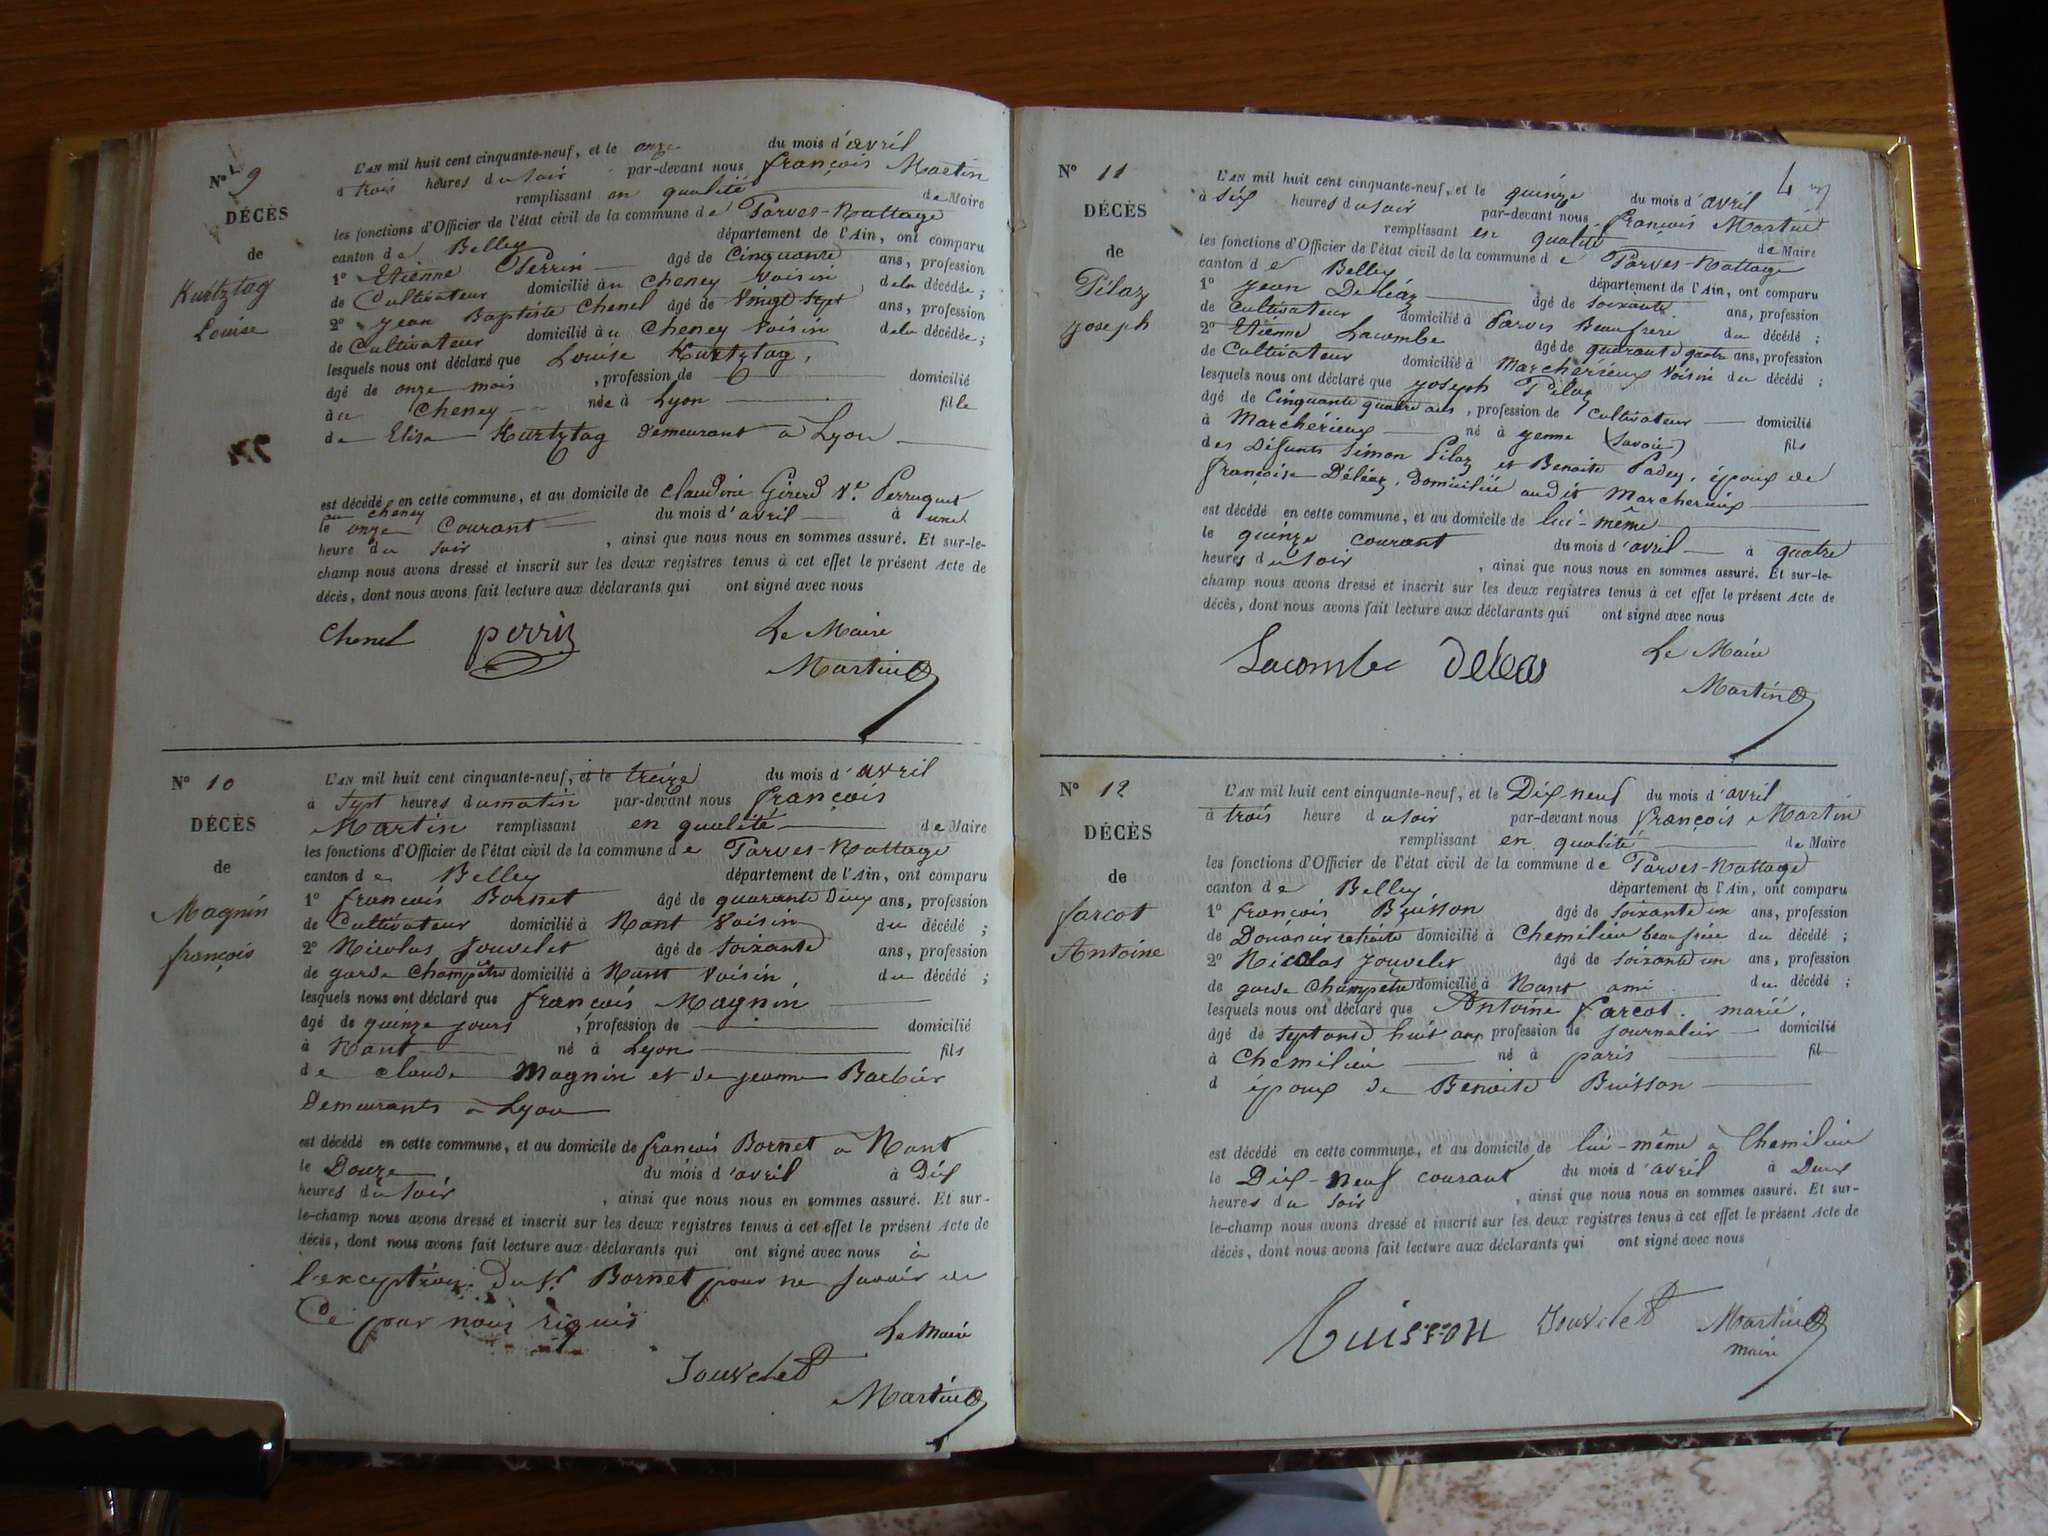 N° 9
DÉCÈS
de
Kurtztag
Louise
L'AN mil huit cent cinquante-neuf, et le onze du mois d'avril
à trois heures du soir par-devant nous françois Martin
remplissant en qualité de Maire
les fonctions d'Officier de l'état civil de la commune de Parves-Nattage
canton de Belley département de l'Ain, ont comparu
1° Etienne Perrin âgé de Cinquante ans, profession
de Cultivateur domicilié au Cheney Voisin de la décédée ;
2° jean Baptiste Chenel âgé de Vingt Sept ans, profession
de Cultivateur domicilié au Cheney Voisin de la décédée ;
lesquels nous ont déclaré que Louise Kurtztag,
âgé de onze mois , profession de domicilié
au Cheney née à Lyon fille
de Elisa Kurtztag demeurant à Lyon
est décédé en cette commune, et au domicile de Claudine Girerd Ve Perruquet
au Cheney
le onze Courant du mois d'avril à une
heure du soir , ainsi que nous nous en sommes assuré. Et sur-le-
champ nous avons dressé et inscrit sur les deux registres tenus à cet effet le présent Acte de
décès, dont nous avons fait lecture aux déclarants qui ont signé avec nous
Chenel perrin Le Maire
Martin
N° 10
DÉCÈS
de
Magnin
françois
L'AN mil huit cent cinquante-neuf, et le treize du mois d'avril
à Sept heures du matin par-devant nous françois
Martin remplissant en qualité de Maire
les fonctions d'Officier de l'état civil de la commune de Parves-Nattage
canton de Belley département de l'Ain, ont comparu
1° françois Bornet âgé de quarante Deux ans, profession
de Cultivateur domicilié à Nant Voisin du décédé ;
2° Nicolas Jouvelet âgé de Soixante ans, profession
de garde Champêtre domicilié à Nant Voisin du décédé ;
lesquels nous ont déclaré que françois Magnin
âgé de quinze jours , profession de domicilié
à Nant né à Lyon fils
de claude Magnin et de jeanne Barbier
Demeurants à Lyon
est décédé en cette commune, et au domicile de françois Bornet à Nant
le Douze du mois d'avril à Dix
heures du soir , ainsi que nous nous en sommes assuré. Et sur-
le-champ nous avons dressé et inscrit sur les deux registres tenus à cet effet le présent Acte de
décès, dont nous avons fait lecture aux déclarants qui ont signé avec nous à
l'exception Du Sr Bornet pour ne savoir de
Ce par nous riquis
Le Maire
Jouvelet
Martin
N° 11
DÉCÈS
de
Pilaz
joseph
L'AN mil huit cent cinquante-neuf, et le quinze du mois d'avril
à six heures du soir par-devant nous françois Martin
remplissant en qualité de Maire
les fonctions d'Officier de l'état civil de la commune de Parves-Nattage
canton de Belley département de l'Ain, ont comparu
1° jean Deléaz âgé de soixante ans, profession
de Cultivateur domicilié à Parves Beaufrere du décédé ;
2° Etienne Lacombe âgé de quarante quatre ans, profession
de Cultivateur domicilié à Marchérieux Voisin du décédé ;
lesquels nous ont déclaré que joseph Pilaz
âgé de Cinquante quatre ans , profession de Cultivateur domicilié
à Marchérieux né à yenne (Savoie) fils
des Défunts Simon Pilaz et Benoite Padey, époux de
françoise Déléaz, domiciliée audit Marcherieux
est décédé en cette commune, et au domicile de lui-même
le quinze courant du mois d'avril à quatre
heures du soir , ainsi que nous nous en sommes assuré. Et sur-le-
champ nous avons dressé et inscrit sur les deux registres tenus à cet effet le présent Acte de
décès, dont nous avons fait lecture aux déclarants qui ont signé avec nous
Lacombe Deleas Le Maire
Martin
N° 12
DÉCÈS
de
farcot
Antoine
L'AN mil huit cent cinquante-neuf, et le Dix-neuf du mois d'avril
à trois heure du soir par-devant nous françois Martin
remplissant en qualité de Maire
les fonctions d'Officier de l'état civil de la commune de Parves-Nattage
canton de Belley département de l'Ain, ont comparu
1° françois Buisson âgé de soixante un ans, profession
de Douanier retraité domicilié à Chemilieu beaufrère du décédé ;
2° Nicolas Jouvelet âgé de soixante un ans, profession
de garde Champêtre domicilié à Nant ami du décédé ;
lesquels nous ont déclaré que Antoine farcot. marié,
âgé de septante huit ans profession de journalier domicilié
à Chemilieu né à paris fil
d époux de Benoite Buisson
est décédé en cette commune, et au domicile de lui-même à Chemilieu
le Dix-neuf courant du mois d'avril à Deux
heures du soir , ainsi que nous nous en sommes assuré. Et sur-
le-champ nous avons dressé et inscrit sur les deux registres tenus à cet effet le présent Acte de
décès, dont nous avons fait lecture aux déclarants qui ont signé avec nous
Buisson Jouvelet Martin
maire